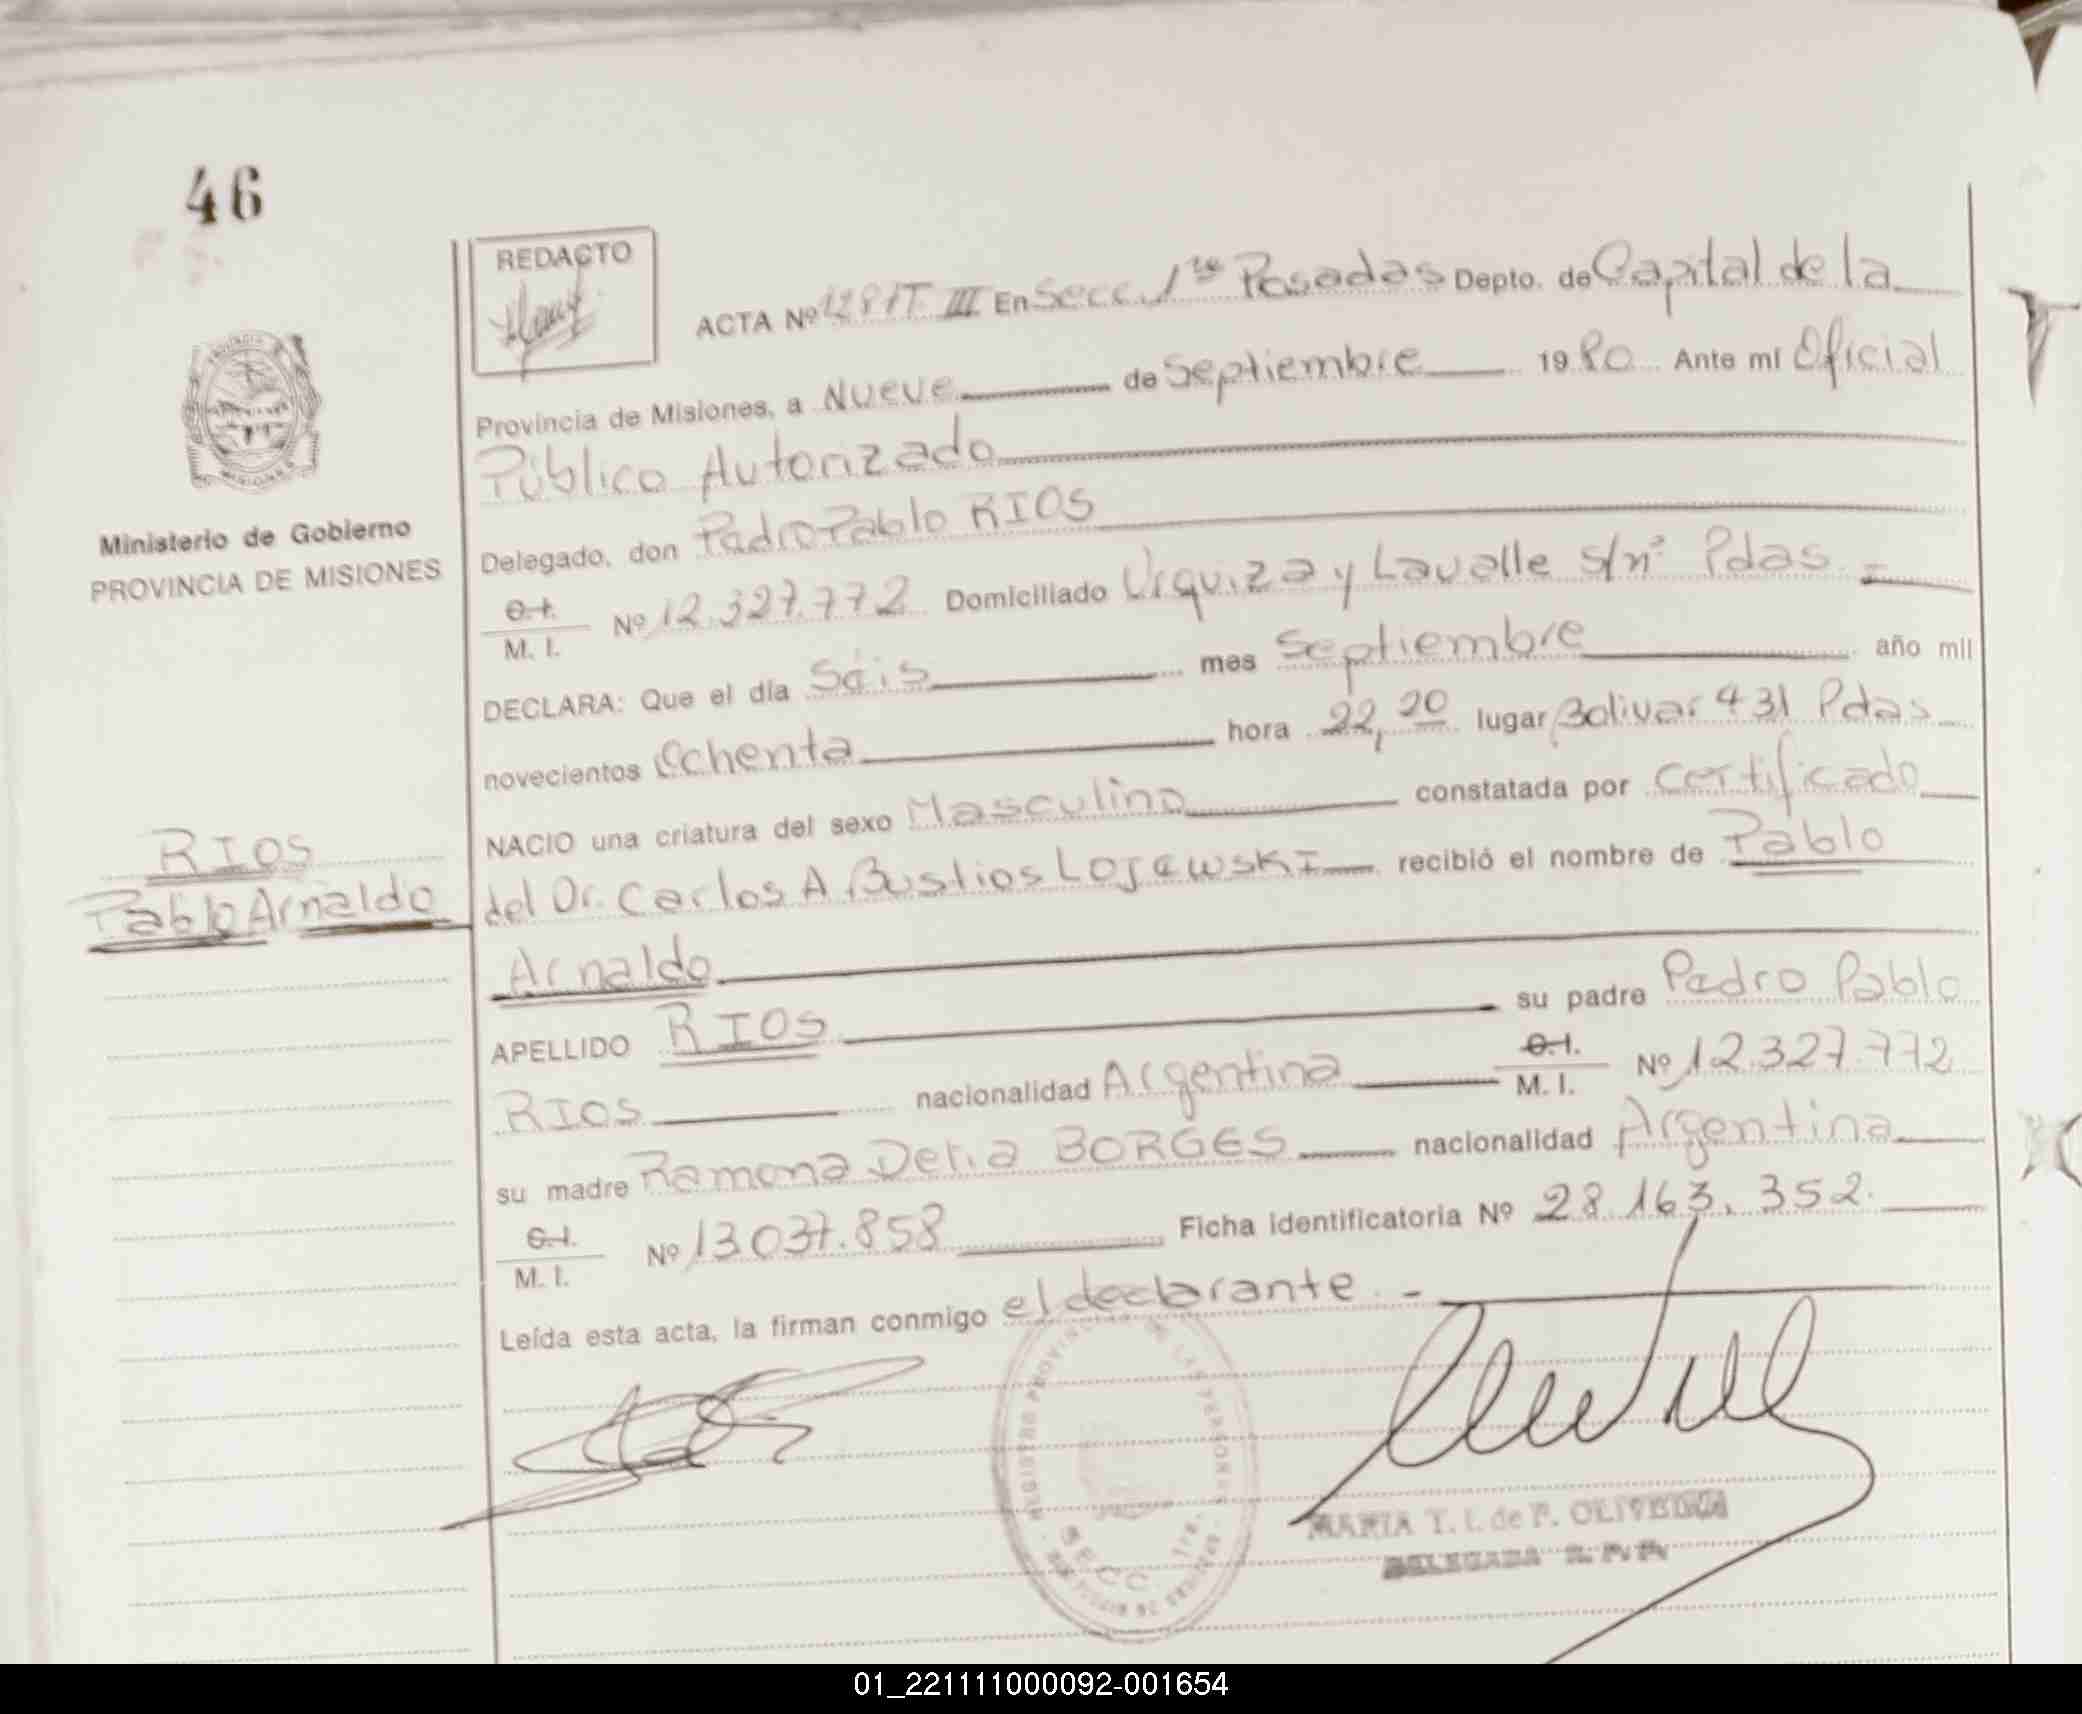 46
REDACTO
ACTA Nº 1281T III En Secc. 1ra Posadas Depto. de Capital de la
Provincia de Misiones, a Nueve de Septiembre 1980 Ante mí Oficial
Público Autorizado
Delegado, don Pedro Pablo RIOS
C.I. M. I. Nº 12.327.772 Domiciliado Urquiza y Lavalle s/nº Pdas.
Ministerio de Gobierno
PROVINCIA DE MISIONES
DECLARA: Que el día Seis mes Septiembre año mil
novecientos Ochenta hora 22,20 lugar Bolivar 431 Pdas
NACIO una criatura del sexo Masculino constatada por Certificado
del Dr. Carlos A Bustios LOJEWSKI recibió el nombre de Pablo
Arnaldo
RIOS
Pablo Arnaldo
APELLIDO RIOS su padre Pedro Pablo
RIOS nacionalidad Argentina C.I. M. I. Nº 12.327.772
su madre Ramona Delia BORGES nacionalidad Argentina
C.I. M. I. Nº 13037.858 Ficha identificatoria Nº 28.163.352.
Leída esta acta, la firman conmigo el declarante. -
REGISTRO PROVINCIAL DE LAS PERSONAS
SECC. 1ra.
MARIA T. I. de F. OLIVEIRA
DELEGADA R. P. P.
01_221111000092-001654